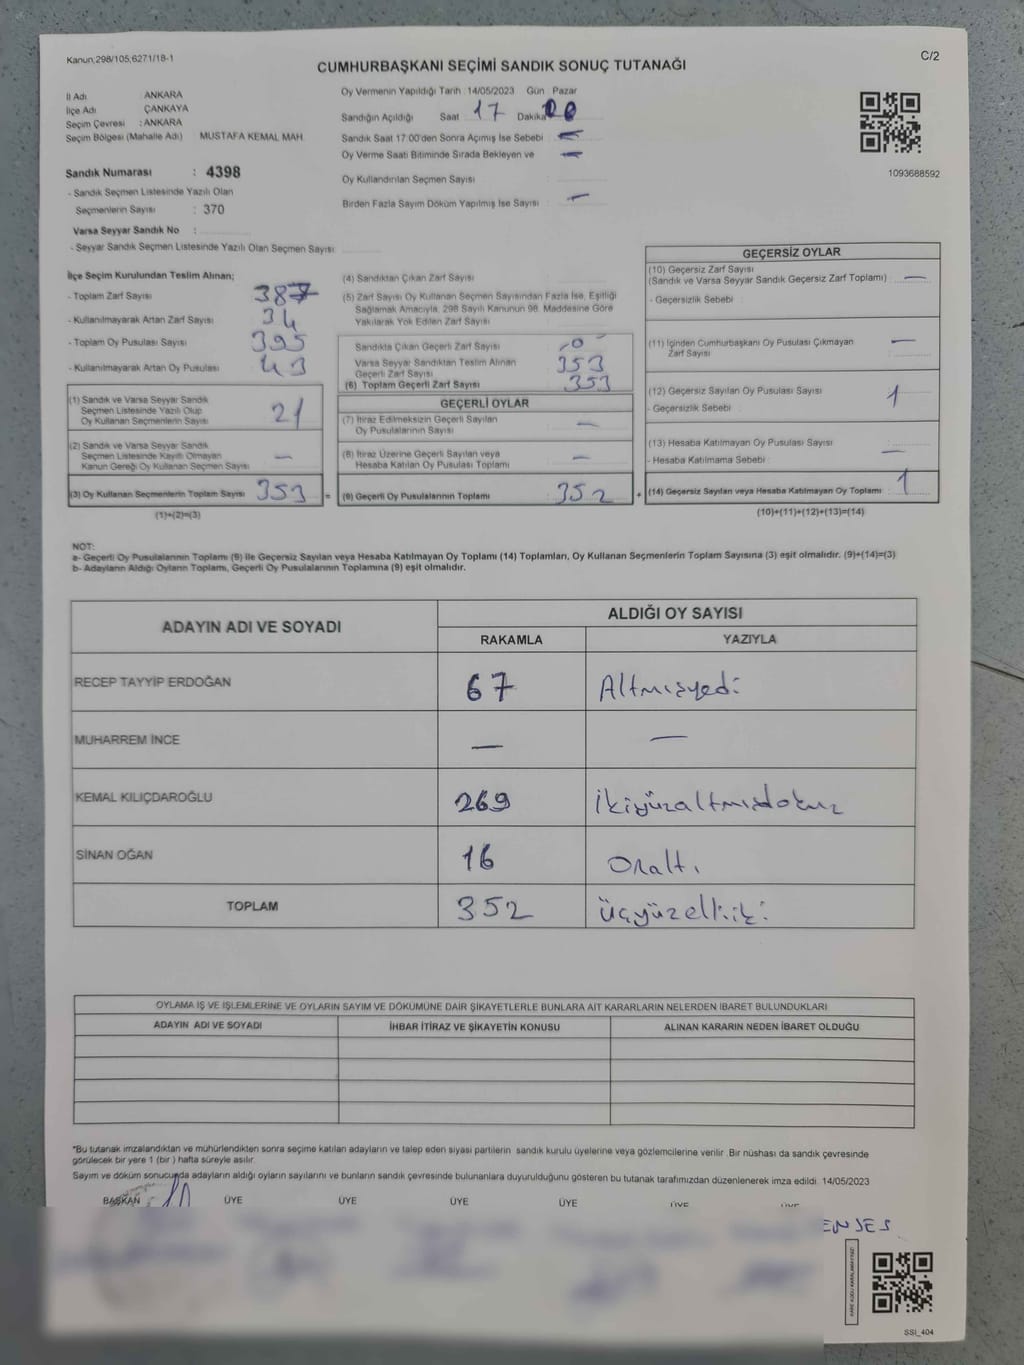 Kanun:298/105,6271/18-1
C/2
CUMHURBAŞKANI SEÇİMİ SANDIK SONUÇ TUTANAĞI
İl Adı ANKARA
İlçe Adı ÇANKAYA
Seçim Çevresi : ANKARA
Seçim Bölgesi (Mahalle Adı) MUSTAFA KEMAL MAH.
Sandık Numarası : 4398
- Sandık Seçmen Listesinde Yazılı Olan
Seçmenlerin Sayısı : 370
Varsa Seyyar Sandık No :
- Seyyar Sandık Seçmen Listesinde Yazılı Olan Seçmen Sayısı
Oy Vermenin Yapıldığı Tarih : 14/05/2023 Gün : Pazar
Sandığın Açıldığı Saat 17 Dakika
Sandık Saat 17:00'den Sonra Açmış İse Sebebi : —
Oy Verme Saati Bitiminde Sırada Bekleyen ve —
Oy Kullandırılan Seçmen Sayısı
Birden Fazla Sayım Döküm Yapılmış İse Sayısı : —
1093688592
İlçe Seçim Kurulundan Teslim Alınan;
- Toplam Zarf Sayısı 387
- Kullanılmayarak Artan Zarf Sayısı : 34
- Toplam Oy Pusulası Sayısı 395
- Kullanılmayarak Artan Oy Pusulası 43
(1) Sandık ve Varsa Seyyar Sandık
Seçmen Listesinde Yazılı Olup
Oy Kullanan Seçmenlerin Sayısı 21
(2) Sandık ve Varsa Seyyar Sandık
Seçmen Listesinde Kayıtlı Olmayan
Kanun Gereği Oy Kullanan Seçmen Sayısı —
(3) Oy Kullanan Seçmenlerin Toplam Sayısı 353 =
(1)+(2)=(3)
(4) Sandıktan Çıkan Zarf Sayısı
(5) Zarf Sayısı Oy Kullanan Seçmen Sayısından Fazla İse, Eşitliği
Sağlamak Amacıyla, 298 Sayılı Kanunun 98. Maddesine Göre
Yakılarak Yok Edilen Zarf Sayısı
Sandıkta Çıkan Geçerli Zarf Sayısı
Varsa Seyyar Sandıktan Teslim Alınan 353
Geçerli Zarf Sayısı
(6) Toplam Geçerli Zarf Sayısı 353
GEÇERLİ OYLAR
(7) İtiraz Edilmeksizin Geçerli Sayılan
Oy Pusulalarının Sayısı —
(8) İtiraz Üzerine Geçerli Sayılan veya
Hesaba Katılan Oy Pusulası Toplamı —
(9) Geçerli Oy Pusulalarının Toplamı : 352 +
GEÇERSİZ OYLAR
(10) Geçersiz Zarf Sayısı
(Sandık ve Varsa Seyyar Sandık Geçersiz Zarf Toplamı) : —
- Geçersizlik Sebebi :
(11) İçinden Cumhurbaşkanı Oy Pusulası Çıkmayan
Zarf Sayısı —
(12) Geçersiz Sayılan Oy Pusulası Sayısı 1
- Geçersizlik Sebebi :
(13) Hesaba Katılmayan Oy Pusulası Sayısı
- Hesaba Katılmama Sebebi : —
(14) Geçersiz Sayılan veya Hesaba Katılmayan Oy Toplamı : 1
(10)+(11)+(12)+(13)=(14)
NOT:
a- Geçerli Oy Pusulalarının Toplamı (9) ile Geçersiz Sayılan veya Hesaba Katılmayan Oy Toplamı (14) Toplamları, Oy Kullanan Seçmenlerin Toplam Sayısına (3) eşit olmalıdır. (9)+(14)=(3)
b- Adayların Aldığı Oyların Toplamı, Geçerli Oy Pusulalarının Toplamına (9) eşit olmalıdır.
ADAYIN ADI VE SOYADI
ALDIĞI OY SAYISI
RAKAMLA YAZIYLA
RECEP TAYYİP ERDOĞAN 67 Altmışyedi
MUHARREM İNCE — —
KEMAL KILIÇDAROĞLU 269 İkiyüzaltmışdokuz
SİNAN OĞAN 16 Onaltı
TOPLAM 352 üçyüzelliiki
OYLAMA İŞ VE İŞLEMLERİNE VE OYLARIN SAYIM VE DÖKÜMÜNE DAİR ŞİKAYETLERLE BUNLARA AİT KARARLARIN NELERDEN İBARET BULUNDUKLARI
ADAYIN ADI VE SOYADI İHBAR İTİRAZ VE ŞİKAYETİN KONUSU ALINAN KARARIN NEDEN İBARET OLDUĞU
*Bu tutanak imzalandıktan ve mühürlendikten sonra seçime katılan adayların ve talep eden siyasi partilerin sandık kurulu üyelerine veya gözlemcilerine verilir .Bir nüshası da sandık çevresinde
görülecek bir yere 1 (bir ) hafta süreyle asılır.
Sayım ve döküm sonucunda adayların aldığı oyların sayılarını ve bunların sandık çevresinde bulunanlara duyurulduğunu gösteren bu tutanak tarafımızdan düzenlenerek imza edildi. 14/05/2023
BAŞKAN ÜYE ÜYE ÜYE ÜYE ÜYE ÜYE
SSI_404